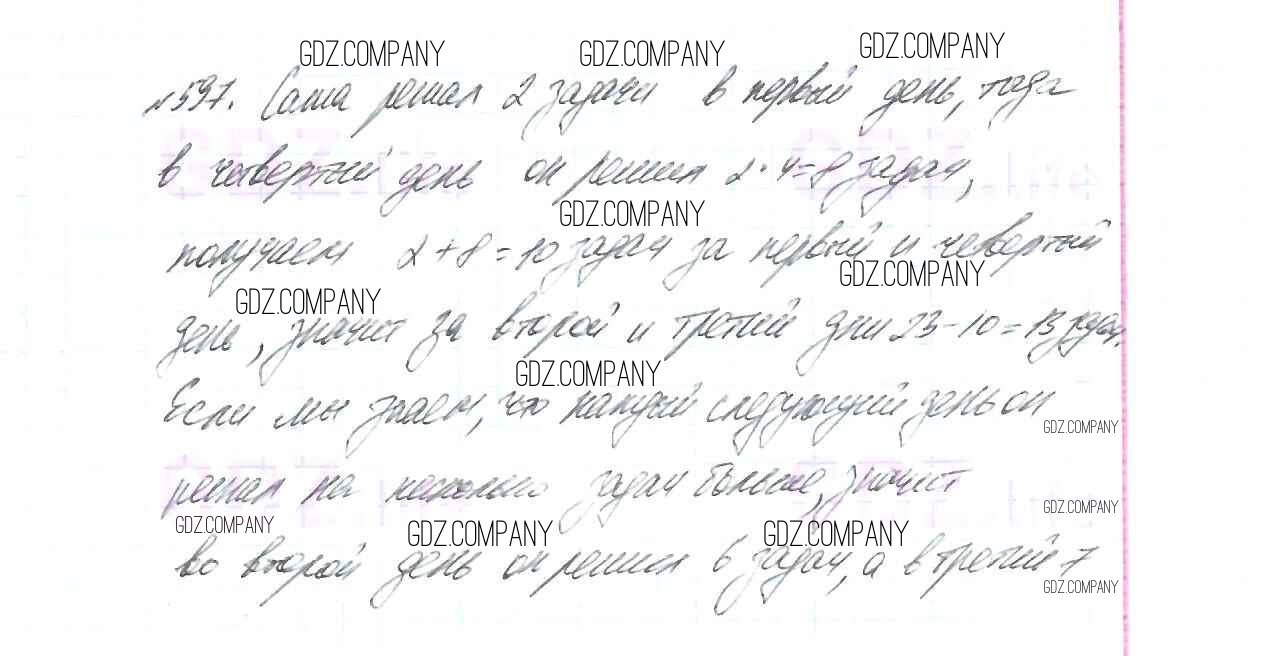 GDZ.COMPANY GDZ.COMPANY GDZ.COMPANY
№597. Саша решал 2 задачи в первый день, тогда
в четвертый день он решил 2·4=8 задач,
GDZ.COMPANY
получаем 2+8=10 задач за первый и четвертый
GDZ.COMPANY GDZ.COMPANY
день, значит за второй и третий дни 23-10=13 задач.
GDZ.COMPANY
Если мы знаем, что каждый следующий день он
GDZ.COMPANY
решал на несколько задач больше, значит
GDZ.COMPANY GDZ.COMPANY GDZ.COMPANY GDZ.COMPANY
во второй день он решил 6 задач, а в третий 7
GDZ.COMPANY